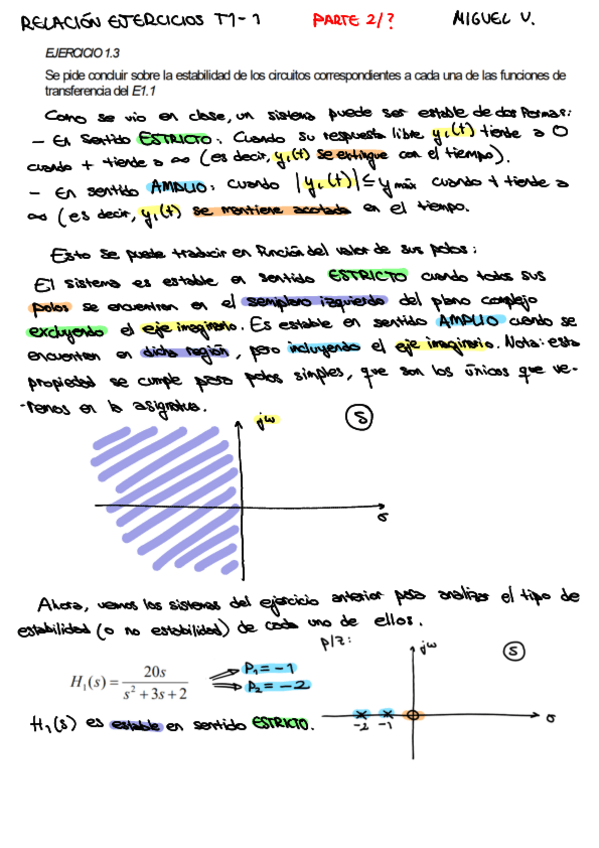 RELACIÓN EJERCICIOS T1-1 PARTE 2/? MIGUEL V.
EJERCICIO 1.3
Se pide concluir sobre la estabilidad de los circuitos correspondientes a cada una de las funciones de
transferencia del E1.1
Como se vio en clase, un sistema puede ser estable de dos formas:
- En sentido ESTRICTO: Cuando su respuesta libre y_l(t) tiende a 0
cuando t tiende a ∞ (es decir, y_l(t) se extingue con el tiempo).
- En sentido AMPLIO: cuando |y_l(t)| ≤ y_máx cuando t tiende a
∞ (es decir, y_l(t) se mantiene acotada en el tiempo.
Esto se puede traducir en función del valor de sus polos:
El sistema es estable en sentido ESTRICTO cuando todos sus
polos se encuentran en el semiplano izquierdo del plano complejo
excluyendo el eje imaginario. Es estable en sentido AMPLIO cuando se
encuentren en dicha región, pero incluyendo el eje imaginario. Nota: esta
propiedad se cumple para polos simples, que son los únicos que ve-
-remos en la asignatura.
jω S
σ
Ahora, veamos los sistemas del ejercicio anterior para analizar el tipo de
estabilidad (o no estabilidad) de cada uno de ellos.
P/Z: jω S
H₁(s) = 20s / (s² + 3s + 2) P₁ = -1
P₂ = -2
H₁(s) es estable en sentido ESTRICTO.
-2 -1 σ